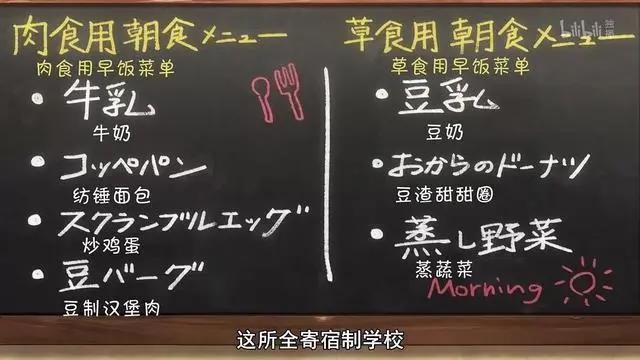 肉食用朝食メニュー
肉食用早饭菜单
牛乳
牛奶
コッペパン
纺锤面包
スクランブルエッグ
炒鸡蛋
豆バーグ
豆制汉堡肉
草食用朝食メニュー
草食用早饭菜单
豆乳
豆奶
おからのドーナツ
豆渣甜甜圈
蒸し野菜
蒸蔬菜
Morning
bilibili 独播
这所全寄宿制学校